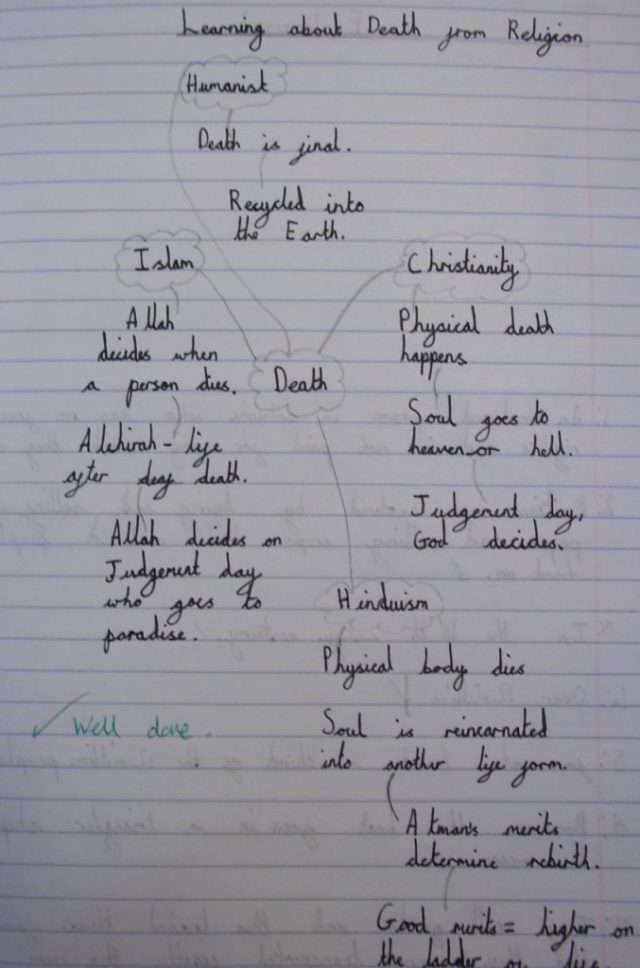 Learning about Death from Religion
Humanist
Death is final.
Recycled into
the Earth.
Islam
Allah
decides when
a person dies.
Akhirah - life
after deaf death.
Allah decides on
Judgement day
who goes to
paradise.
Christianity
Physical death
happens
Soul goes to
heaven or hell.
Judgement day,
God decides.
Death
Hinduism
Physical body dies
Soul is reincarnated
into another life form.
Atman's merits
determine rebirth.
Good merits = higher on
the ladder of life.
Well done.